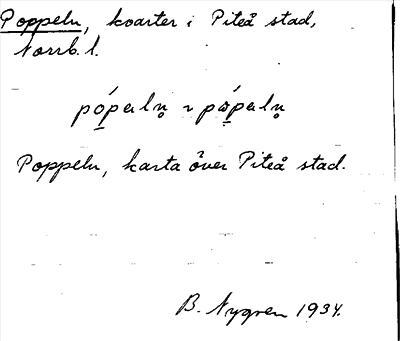 Poppeln, kvarter i Piteå stad,
Norrb. l.
pópəln̥ ~ pópəln̥
Poppeln, karta över Piteå stad.
B. Nygren 1934.